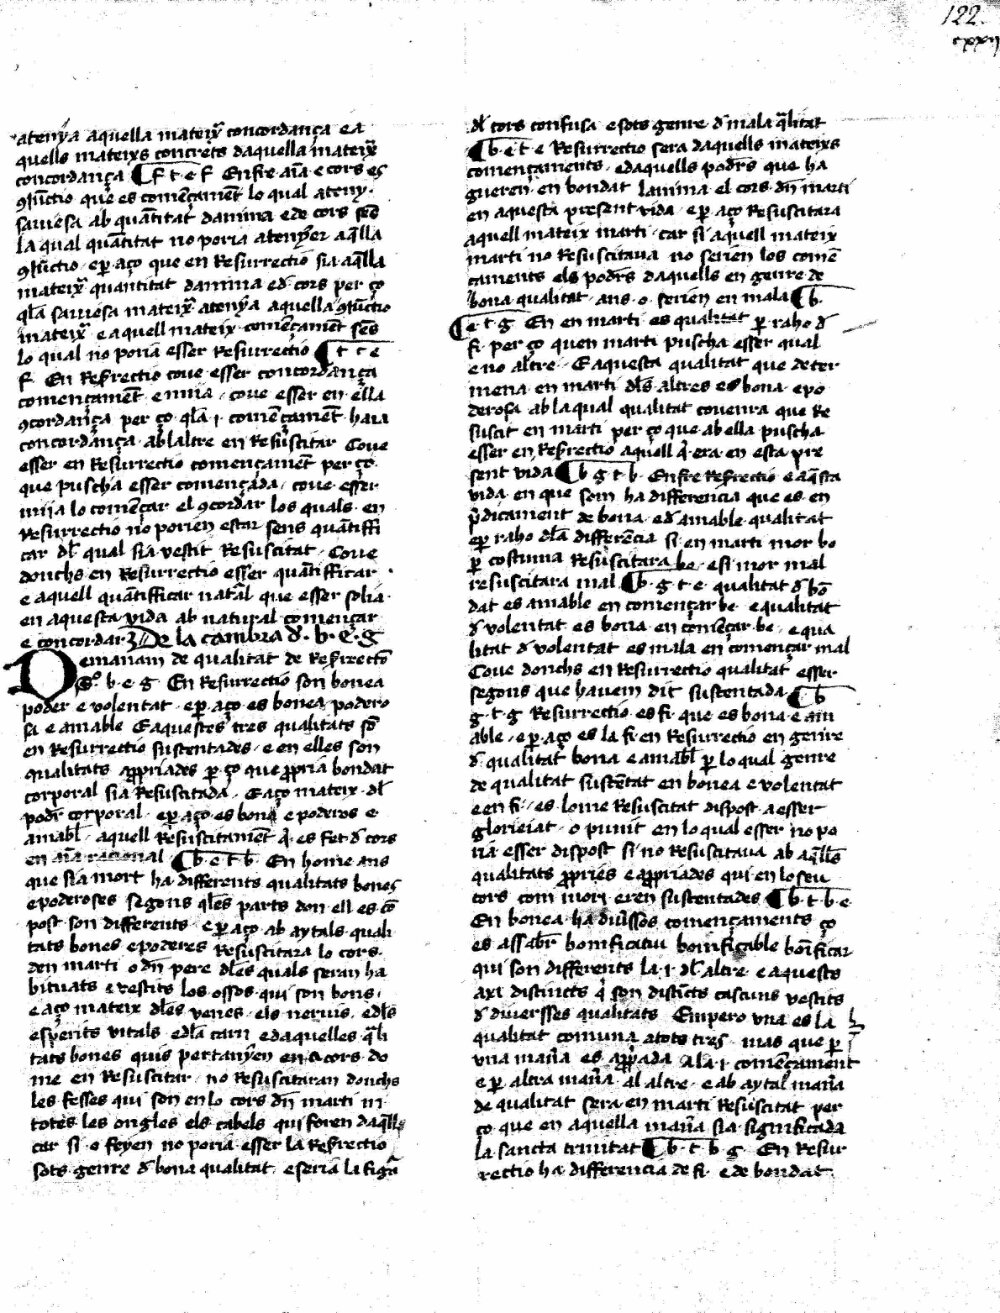 122.
cxxij
atenỹa aquella mateix̃ concordança e a
quells mateixs concrets daquella mateix̃
concordança ¶ f t e f Enfre aĩa e cors es
ꝯiũctio que es comẽçamẽt lo qual ateny
sauiesa ab quãtitat danima e de cors sẽs
la qual quãtitat no poria atenỹer aq̃lla
ꝯiũctio · e ꝑ aço que en Resurrectio sia aq̃lla
mateix̃ quantitat danima e d̃ cors per ço
q̃ la sauiesa mateix̃ atenỹa aquella ꝯiũctio
mateix̃ e aquell mateix comẽçamẽt sẽs
lo qual no poria esser resurrectio ¶ t t e
f En Resr̃rectio coue esser concordança
començamẽt e miia / coue esser en ella
ꝯcordãça per ço q̃ la · i · comẽçamẽt haia
concordãça ab laltre en resuscitar Coue
esser en Resurrectio començamẽt per ço
que puscha esser començada / coue esser
miia lo començar el ꝯcordar los quals en
Resurrectio no porien estar sens quãtiffi
car dl̃ qual sia vestit Resuscitat · Coue
donchs en Resurrectio esser quãtifficar ·
e aquell quãtifficar nat̃al que esser solia
en aquesta vida ab natural començar
e concordar De la cambra d̃ · b · e · g
Demanam de qualitat de resr̃rectio
Sº b · e · g En Resurrectio son bonea
poder e volentat · e ꝑ aço es bonea podero
sa e amable E aquestes tres qualitats sõ
en Resurrectio sustentades · e en elles son
qualitats ꝓpriades ꝑ ço que ꝓpria bondat
corporal sia Resuscitada · E aço mateix dl̃
pod̃r corporal · e ꝑ aço es bona e poderos e
amabl̃ · aquell Resuscitament q̃ es fet d̃ cors
en aĩa racional ¶ b e t b En home ans
que sia mort ha differents qualitats bones
e poderoses segons q̃ les parts don ell es cõ
post son differents · e ꝑ aço ab aytals quali
tats bones e poderes Resuscitara lo cors
den marti o dñ pere dl̃es quals seran ha
bituats e vestits los ossos qui son bons ·
e aço mateix dl̃es venes · els neruis · e dl̃s
esperits vitals e dl̃a carn e daquelles q̃li
tats bones quis pertanỹen en cors do
me en Resuscitar · no Resuscitaran donchs
les fesses qui son en lo cors dñ marti ni
totes les ongles els cabels qui foren daq̃ll
car si o feyen no poria esser la resr̃rectio
sots genre d̃ bona qualitat e seria la figã
dl̃ cors confusa e sots genre d̃ mala q̃litat
¶ b · e · t · e Resurrectio sera daquells mateixs
començaments · e daquells podr̃s que ha
gueren en bondat lanima el cors dñ marti
en aquesta present vida · e ꝑ aço Resuscitara
aquell mateix marti · car si aquell mateix
marti no Resuscitaua no serien los comẽ
çaments els podr̃s daquells en genre de
bona qualitat ans o serien en mala ¶ b
e · t · g En en marti es qualitat ꝑ raho d̃
fi · per ço quen marti puscha esser qual
e no altre · E aquesta qualitat que deter
mena en marti dl̃s altres es bona e po
derosa ab la qual qualitat couenra que re
suscit en marti per ço que ab ella puscha
esser en resr̃rectio aquell q̃ era en esta pre
sent vida ¶ b g t b · Enfre resr̃rectio e aq̃sta
vida en que som ha differencia que es en
p̃dicament de bona · e d̃ amable qualitat
e ꝑ raho dl̃a differẽcia si en marti mor bo
ꝑ costuma Resuscitara be · e si mor mal
resuscitara mal ¶ b · g · t · e · qualitat d̃ bõ
dat es amable en començar be e qualitat
d̃ volentat es bona en comẽçar be · e qua
litat d̃ volentat es mala en començar mal
Coue donchs en Resurrectio qualitat esser
segons que hauem dit sustentada ¶ b
g · t · g Resurrectio es fi que es bona e am
able · e ꝑ aço es la fi en Resurrectio en genre
d̃ qualitat bona e amabl̃ ꝑ lo qual genre
de qualitat sustẽtat en bonea e volentat
e en fi · es lome Resuscitat dispost a esser
glorieiat · o punit en lo qual esser no po
ria esser dispost si no Resuscitaua ab aq̃lles
qualitats ꝓpries e apꝓpriades qui en lo seu
cors com mori eren sustentades ¶ b · t · b · e
En bonea ha diu̾ssos començaments ço
es assabr̃ bonificatiu bonificable bonificar
qui son differents la · i · dl̃ altre · e aquests
axi distincts q̃ son distincts cascuns vestits
d̃ diuersses qualitats Empero vna es la
qualitat comuna a tots tres · mas que ꝑ
vna manã es apꝓpada a la · i · comẽçament
e ꝑ altra manã · al altre · e ab aytal manã
de qualitat sera en marti Resuscitat per
ço que en aquella manã sia significada
la sancta trinitat ¶ b · t · b · g · En Resur
rectio ha differencia de fi · e de bondat